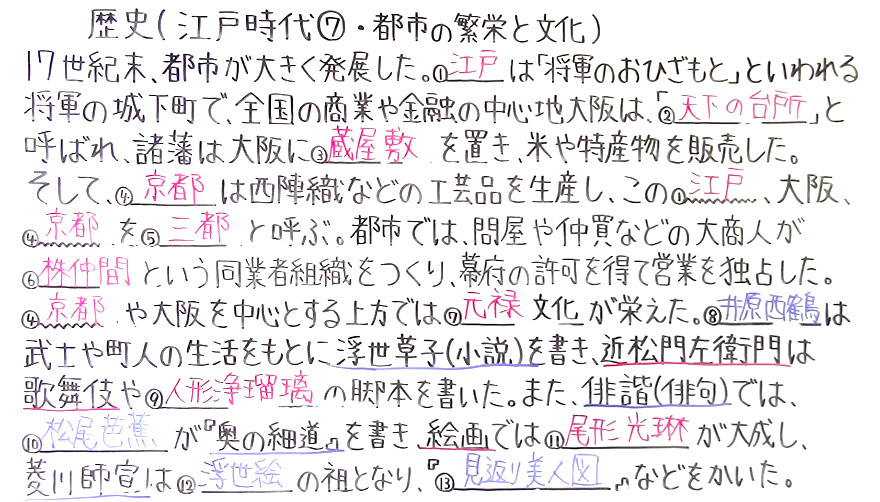 歴史(江戸時代⑦・都市の繁栄と文化)
17世紀末、都市が大きく発展した。①江戸は「将軍のおひざもと」といわれる
将軍の城下町で、全国の商業や金融の中心地大阪は、「②天下の台所」と
呼ばれ、諸藩は大阪に③蔵屋敷を置き、米や特産物を販売した。
そして、④京都は西陣織などの工芸品を生産し、この①江戸、大阪、
④京都を⑤三都と呼ぶ。都市では、問屋や仲買などの大商人が
⑥株仲間という同業者組織をつくり、幕府の許可を得て営業を独占した。
④京都や大阪を中心とする上方では⑦元禄文化が栄えた。⑧井原西鶴は
武士や町人の生活をもとに浮世草子(小説)を書き、近松門左衛門は
歌舞伎や⑨人形浄瑠璃の脚本を書いた。また、俳諧(俳句)では、
⑩松尾芭蕉が『奥の細道』を書き、絵画では⑪尾形光琳が大成し、
菱川師宣は⑫浮世絵の祖となり、『⑬見返り美人図』などをかいた。